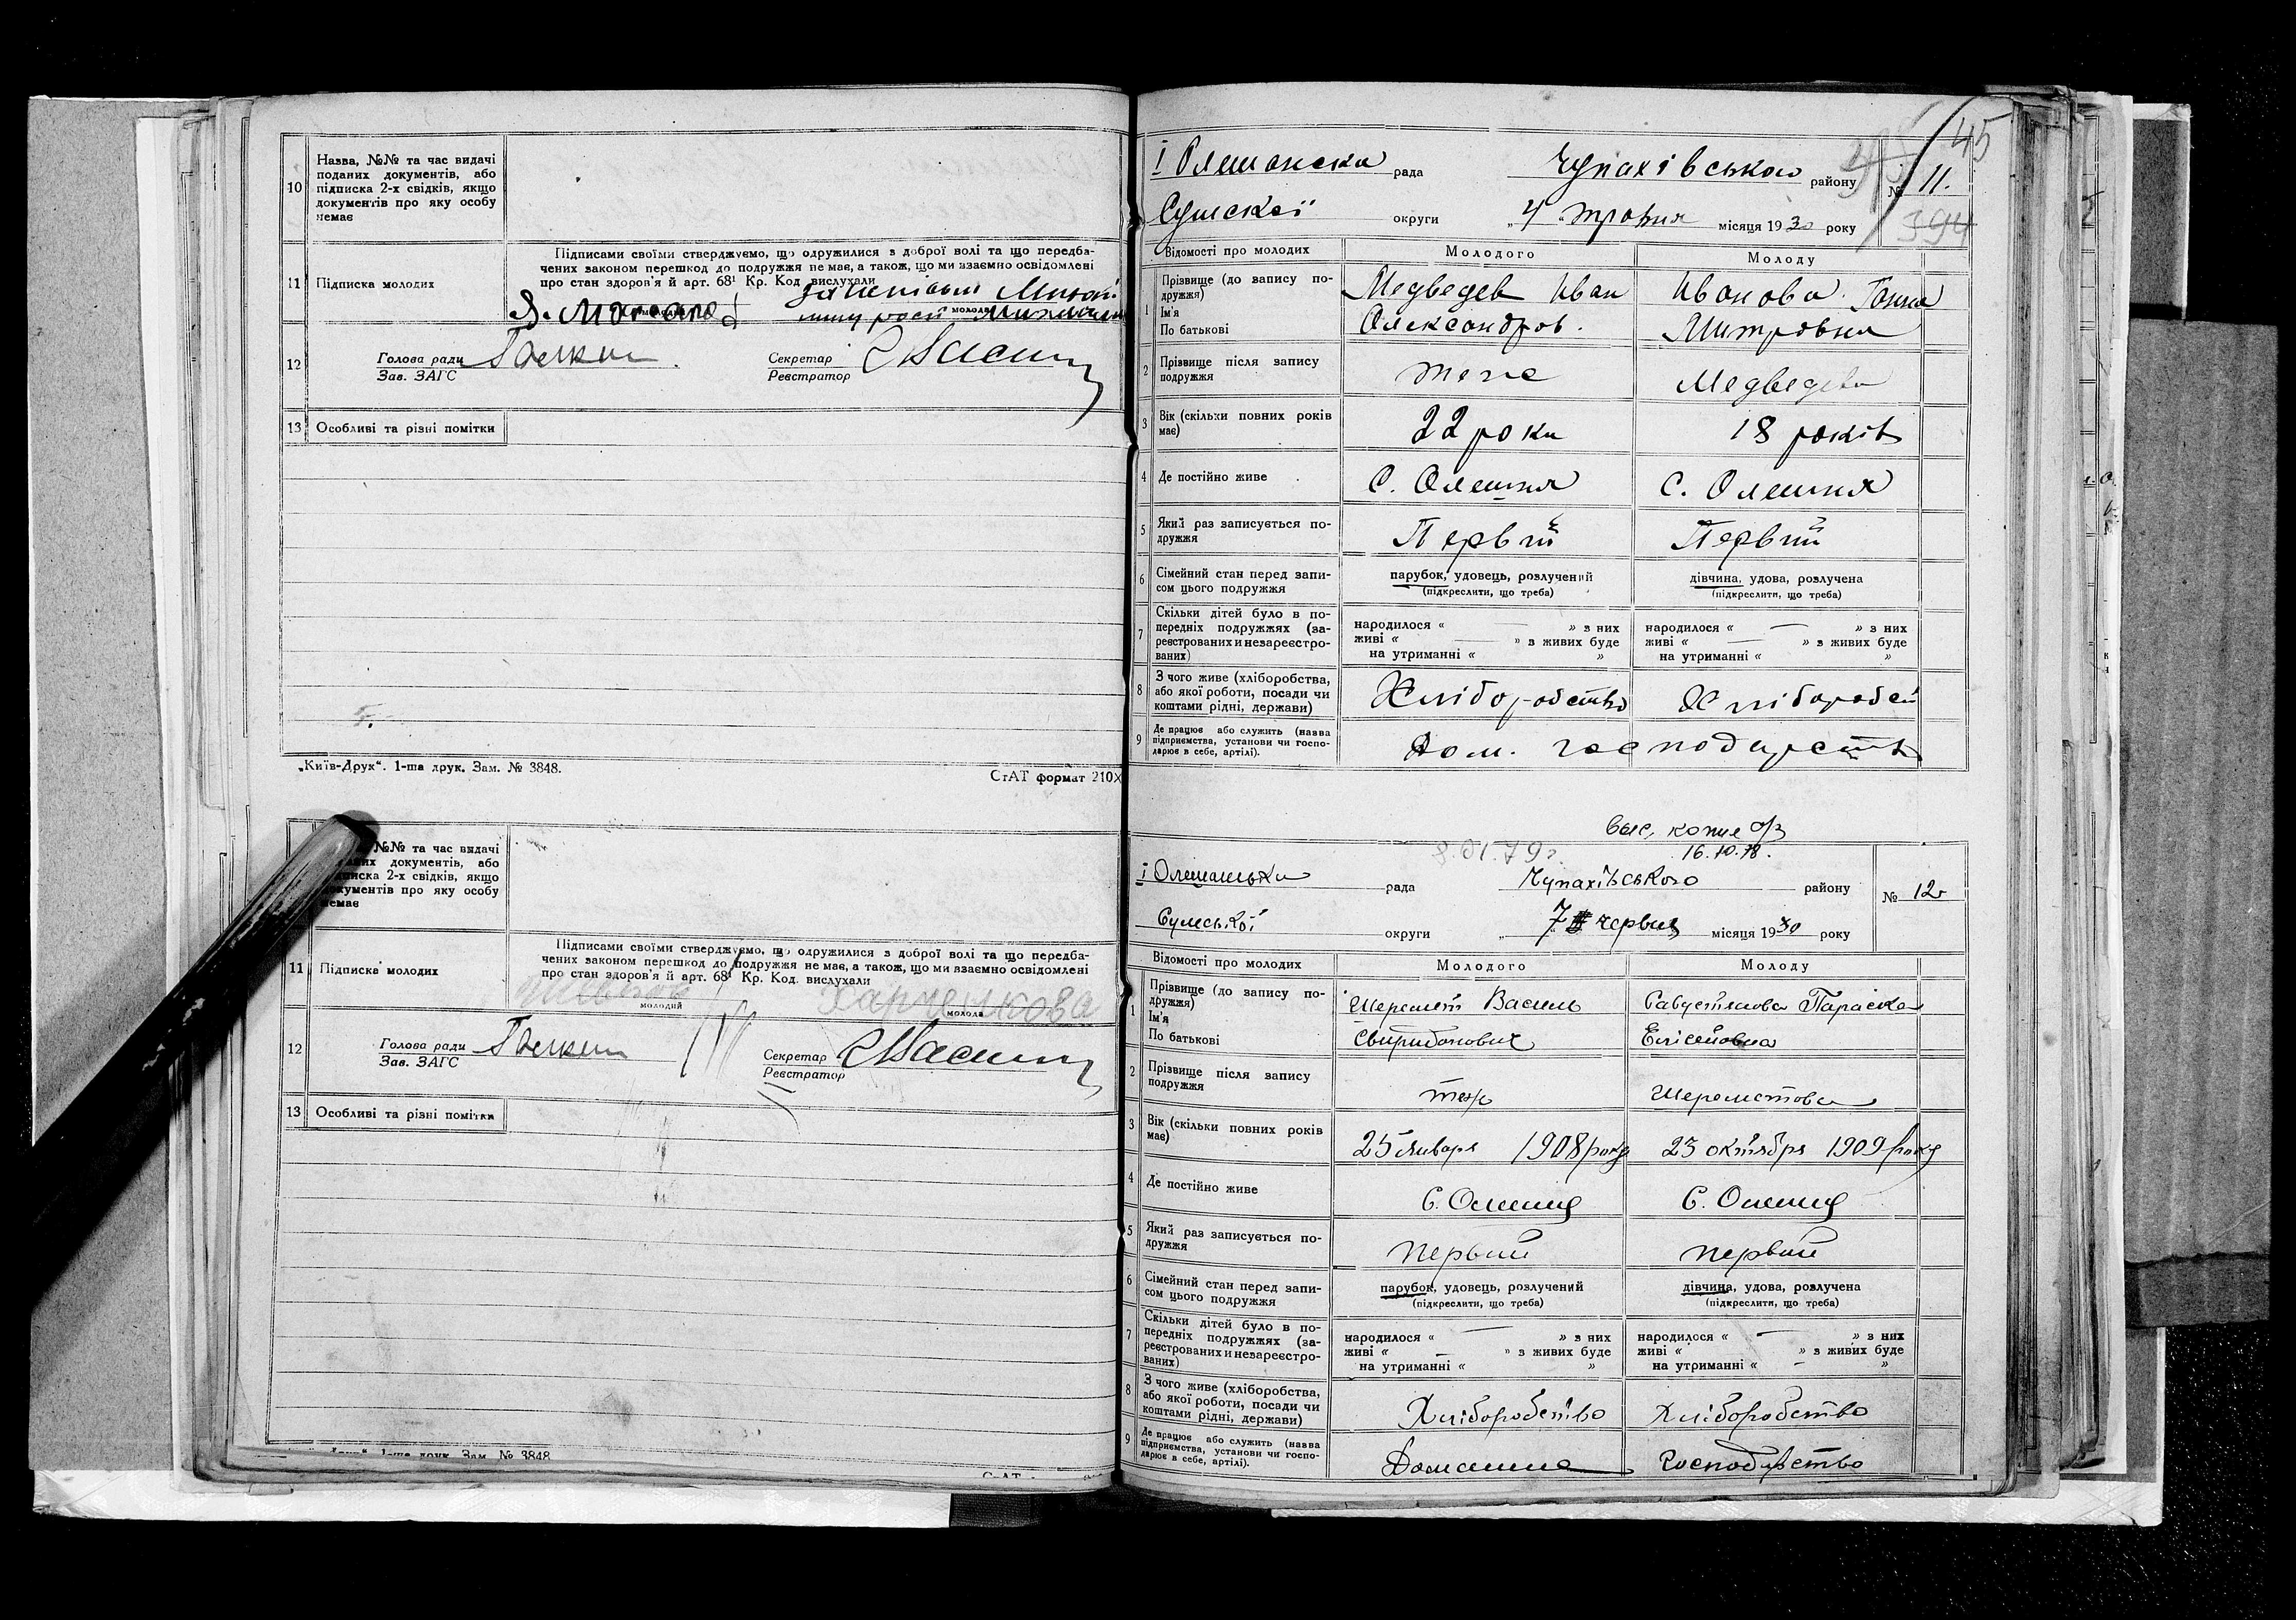 10 Назва, №№ та час видачі
поданих документів, або
підписка 2-х свідків, якщо
документів про яку особу
немає
11 Підписка молодих
Підписами своїми стверджуємо, що одружилися з доброї волі та що передба-
чених законом перешкод до подружжя не має, а також, що ми взаємно освідомлені
про стан здоров'я й арт. 68¹ Кр. Код вислухали
12 Голова ради
Зав. ЗАГС
Секретар
Реєстратор
13 Особливі та різні помітки
„Київ-Друк“. 1-ша друк. Зам. № 3848.
СтАТ формат 210×
№№ та час видачі
документів, або
підписка 2-х свідків, якщо
документів про яку особу
немає
11 Підписка молодих
Підписами своїми стверджуємо, що одружилися з доброї волі та що передба-
чених законом перешкод до подружжя не має, а також, що ми взаємно освідомлені
про стан здоров'я й арт. 68¹ Кр. Код. вислухали
молодий
Харченкова
молода
12 Голова ради
Зав. ЗАГС
Секретар
Реєстратор
13 Особливі та різні помітки
1-ша друк. Зам. № 3848
45
І Олешанска рада Чупахівського району № 11.
394
Сумскої округи „4 травня місяця 1930 року
Відомості про молодих Молодого Молоду
1 Прізвище (до запису по-
дружжя)
Ім'я
По батькові
Медведев Иван
Олександров.
Иванова Ганна
Митровна
2 Прізвище після запису
подружжя
теже Медведева
3 Вік (скільки повних років
має)
22 роки 18 років
4 Де постійно живе С. Олешня С. Олешня
5 Який раз записується по-
дружжя
Первий Первий
6 Сімейний стан перед запи-
сом цього подружжя
парубок, удовець, розлучений
(підкреслити, що треба)
дівчина, удова, розлучена
(підкреслити, що треба)
7 Скільки дітей було в по-
передніх подружжях (за-
реєстрованих и незареєстро-
ваних)
народилося « — » з них
живі « — » з живих буде
на утриманні « »
народилося « — » з них
живі « — » з живих буде
на утриманні « »
8 З чого живе (хліборобства,
або якої роботи, посади чи
коштами рідні, держави)
Хліборобство
9 Де працює або служить (назва
підприємства, установи чи госпо-
дарює в себе, артілі).
Дом. господарств
выс, копие
8.01.79г. 16.10.78.
І Олешанська рада Чупахівського району № 12
Сумської округи „7 червня місяця 1930 року
Відомості про молодих Молодого Молоду
1 Прізвище (до запису по-
дружжя)
Ім'я
По батькові
Шеремет Василь
Свиридонович
Савустянова Параска
Елісейовна
2 Прізвище після запису
подружжя
теж Шереметова
3 Вік (скільки повних років
має)
25 января 1908 року 23 октября 1909 року
4 Де постійно живе С. Олешня С. Олешня
5 Який раз записується по-
дружжя
первий первий
6 Сімейний стан перед запи-
сом цього подружжя
парубок, удовець, розлучений
(підкреслити, що треба)
дівчина, удова, розлучена
(підкреслити, що треба)
7 Скільки дітей було в по-
передніх подружжях (за-
реєстрованих и незареєстро-
ваних)
народилося « — » з них
живі « — » з живих буде
на утриманні « »
народилося « — » з них
живі « » з живих буде
на утриманні « – »
8 З чого живе (хліборобства,
або якої роботи, посади чи
коштами рідні, держави)
Хліборобство Хліборобство
9 Де працює або служить (назва
підприємства, установи чи госпо-
дарює в себе, артілі).
Домашнє Господарство